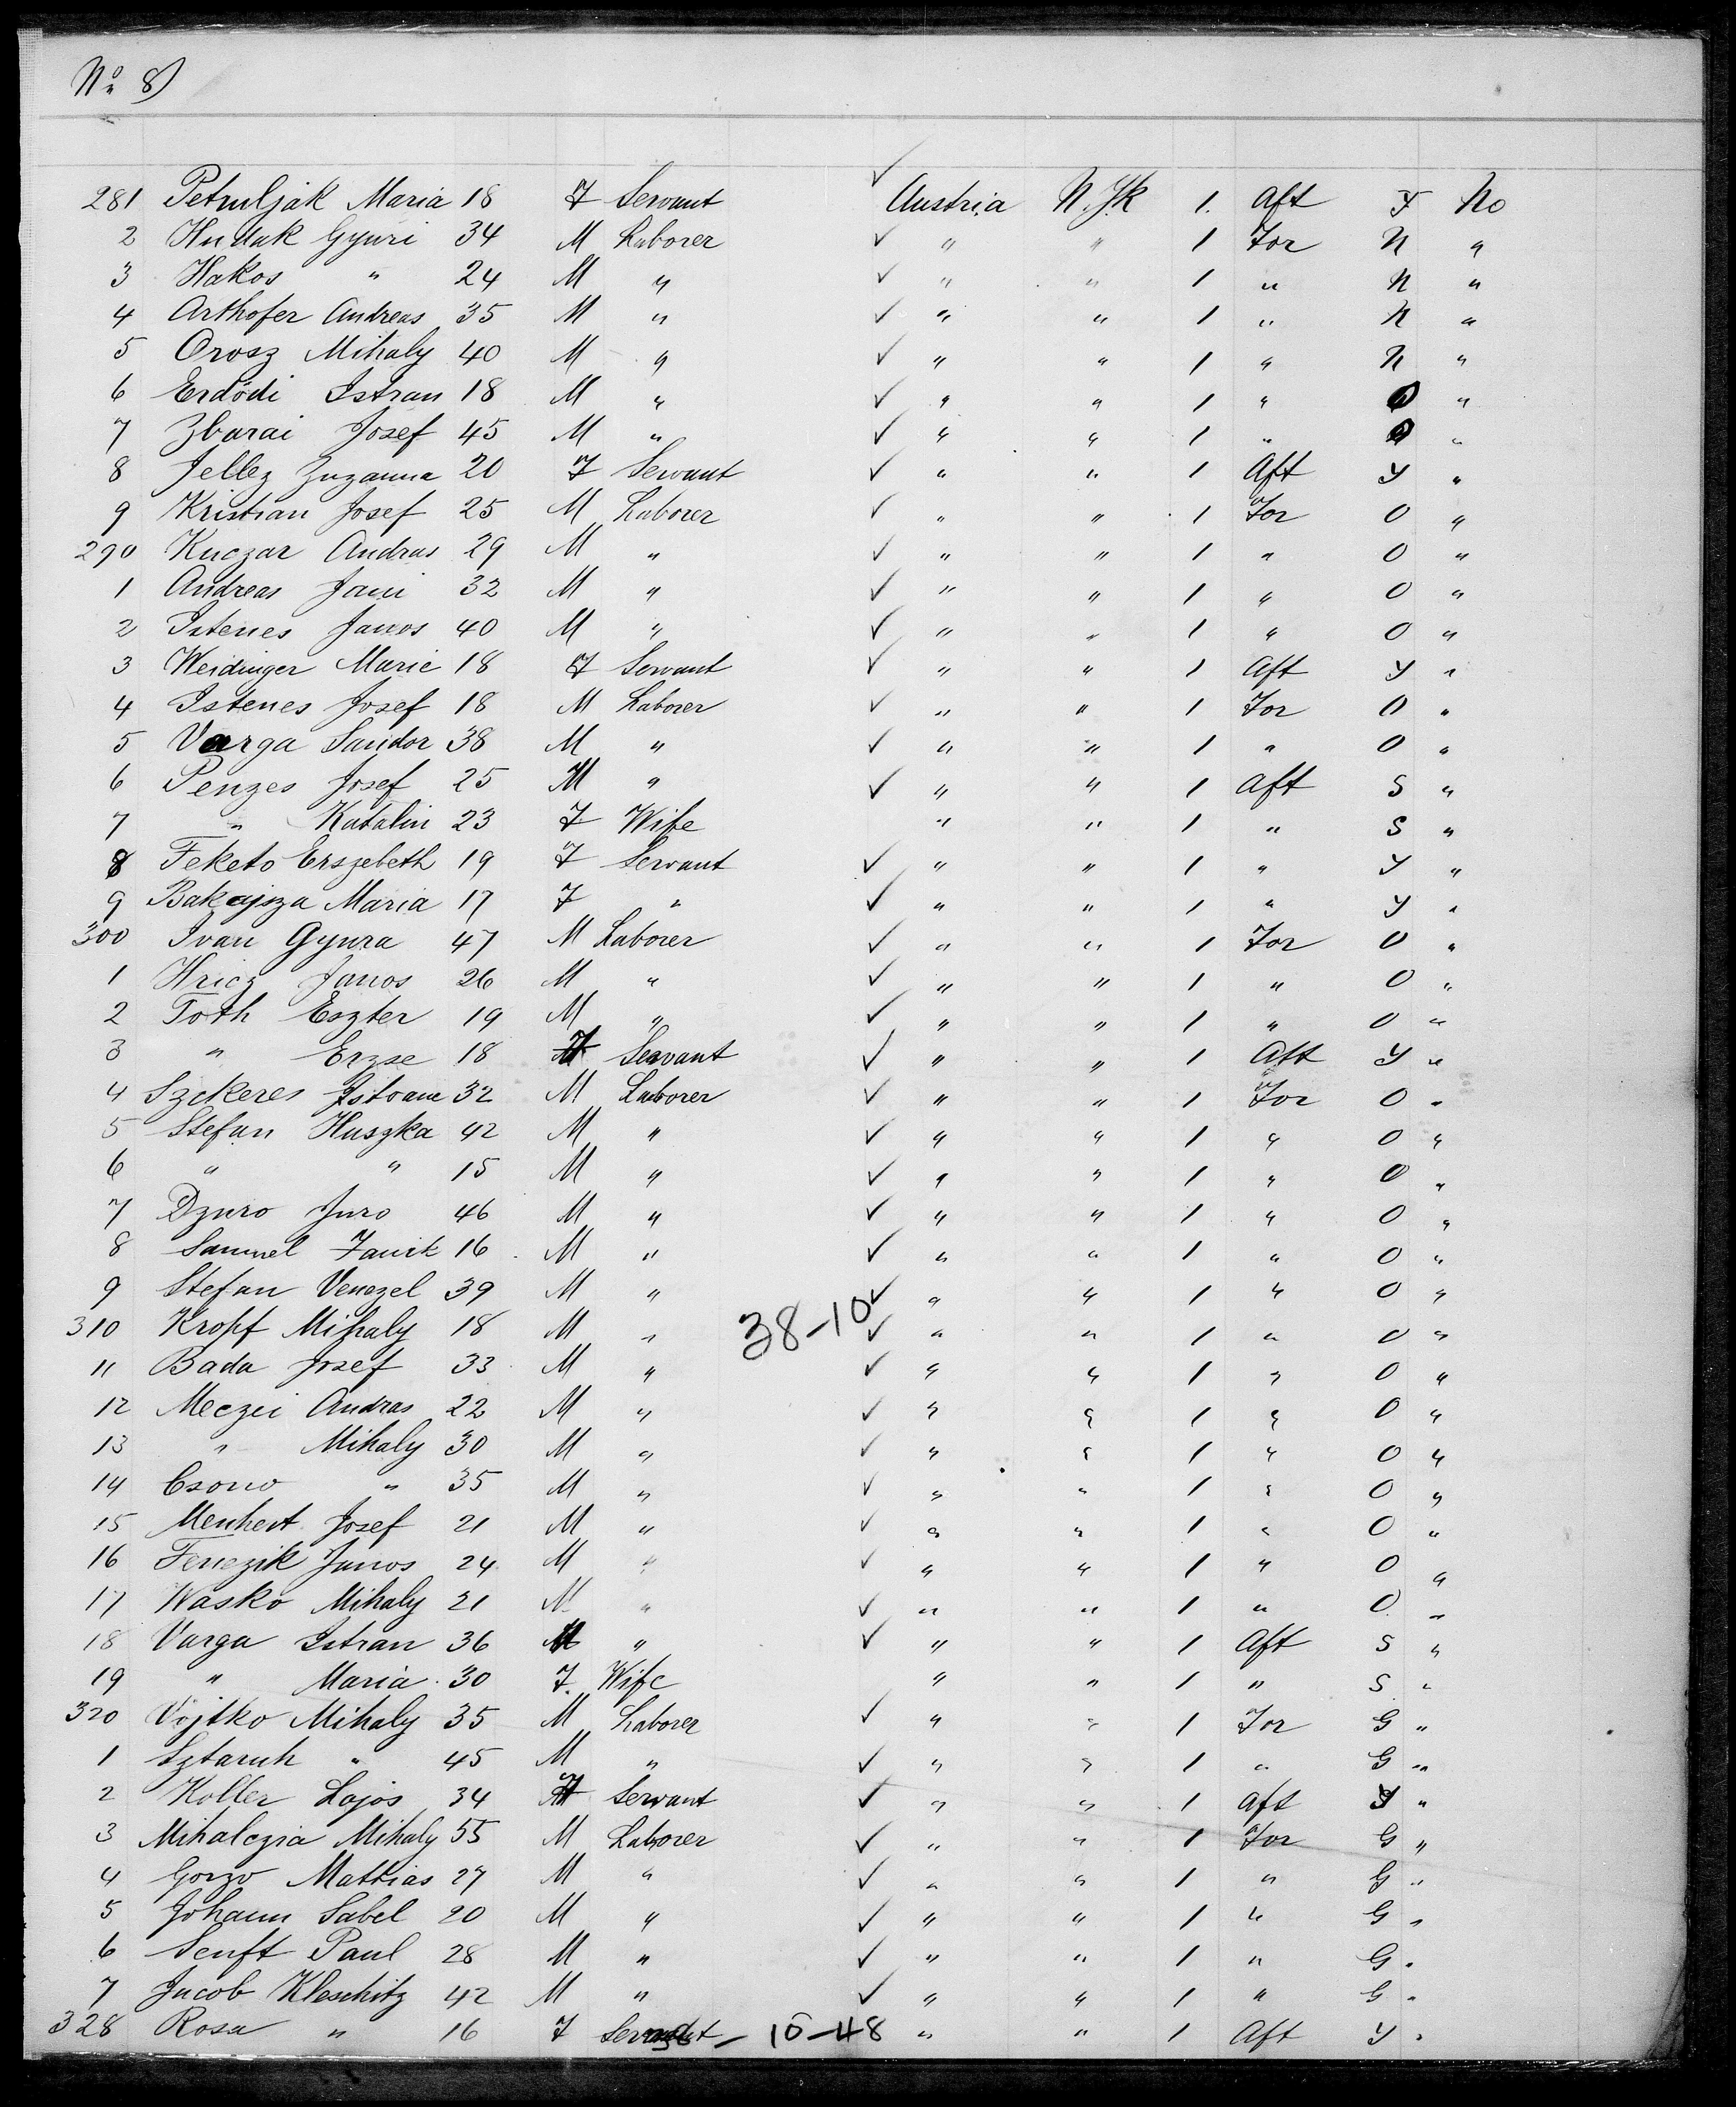 No 8)
281 Petruljak Maria 18 F Servant Austria N.Yk 1. Aft Y No
2 Hudak Gyuri 34 M Laborer ✓ " " 1 For N "
3 Hakos " 24 M " ✓ " " 1 " N "
4 Arthofer Andreas 35 M " ✓ " " 1 " N "
5 Orosz Mihaly 40 M " ✓ " " 1 " N "
6 Erdödi Istvan 18 M " ✓ " " 1 " O "
7 Zbarai Josef 45 M " ✓ " " 1 " O "
8 Jellez Zuzanna 20 F Servant ✓ " " 1 Aft Y "
9 Kristian Josef 25 M Laborer ✓ " " 1 For O "
290 Kuczar Andras 29 M " ✓ " " 1 " O "
1 Andreas Jani 32 M " ✓ " " 1 " O "
2 Istenes Janos 40 M " ✓ " " 1 " O "
3 Weidinger Marie 18 F Servant ✓ " " 1 Aft Y "
4 Istenes Josef 18 M Laborer ✓ " " 1 For O "
5 Varga Sandor 38 M " ✓ " " 1 " O "
6 Penzes Josef 25 M " ✓ " " 1 Aft S "
7 " Katalin 23 F Wife " " 1 " S "
8 Feketo Erszebeth 19 F Servant ✓ " " 1 " Y "
9 Bakajsza Maria 17 F " ✓ " " 1 " Y "
300 Ivan Gyura 47 M Laborer ✓ " " 1 For O "
1 Hricz Janos 26 M " ✓ " " 1 " O "
2 Toth Eszter 19 M " ✓ " " 1 " O "
3 " Erzse 18 F Servant ✓ " " 1 Aft Y "
4 Szekeres Istvane 32 M Laborer ✓ " " 1 For O "
5 Stefan Huszka 42 M " ✓ " " 1 " O "
6 " " 15 M " ✓ " " 1 " O "
7 Dzuro Juro 46 M " ✓ " " 1 " O "
8 Samuel Janik 16 M " ✓ " " 1 " O "
9 Stefan Venczel 39 M " ✓ " " 1 " O "
310 Kropf Mihaly 18 M " 38-10 ✓ " " 1 " O "
11 Bada Josef 33 M " ✓ " " 1 " O "
12 Meczei Andras 22 M " ✓ " " 1 " O "
13 " Mihaly 30 M " ✓ " " 1 " O "
14 Csono " 35 M " ✓ " " 1 " O "
15 Menhert Josef 21 M " ✓ " " 1 " O "
16 Fenczik Janos 24 M " ✓ " " 1 " O "
17 Wasko Mihaly 21 M " ✓ " " 1 " O "
18 Varga Istvan 36 M " ✓ " " 1 Aft S "
19 " Maria 30 F. Wife " " 1 " S "
320 Vojtko Mihaly 35 M Laborer ✓ " " 1 For G "
1 Sztaruh " 45 M " ✓ " " 1 " G "
2 Koller Lajos 34 F Servant ✓ " " 1 Aft Y "
3 Mihalczia Mihaly 55 M Laborer ✓ " " 1 For G "
4 Gorzo Mattias 27 M " ✓ " " 1 " G "
5 Johann Sabel 20 M " ✓ " " 1 " G "
6 Senft Paul 28 M " ✓ " " 1 " G "
7 Jacob Kleschitz 42 M " ✓ " " 1 " G "
328 Rosa " 16 F Servant - 10-48 " " 1 Aft Y "